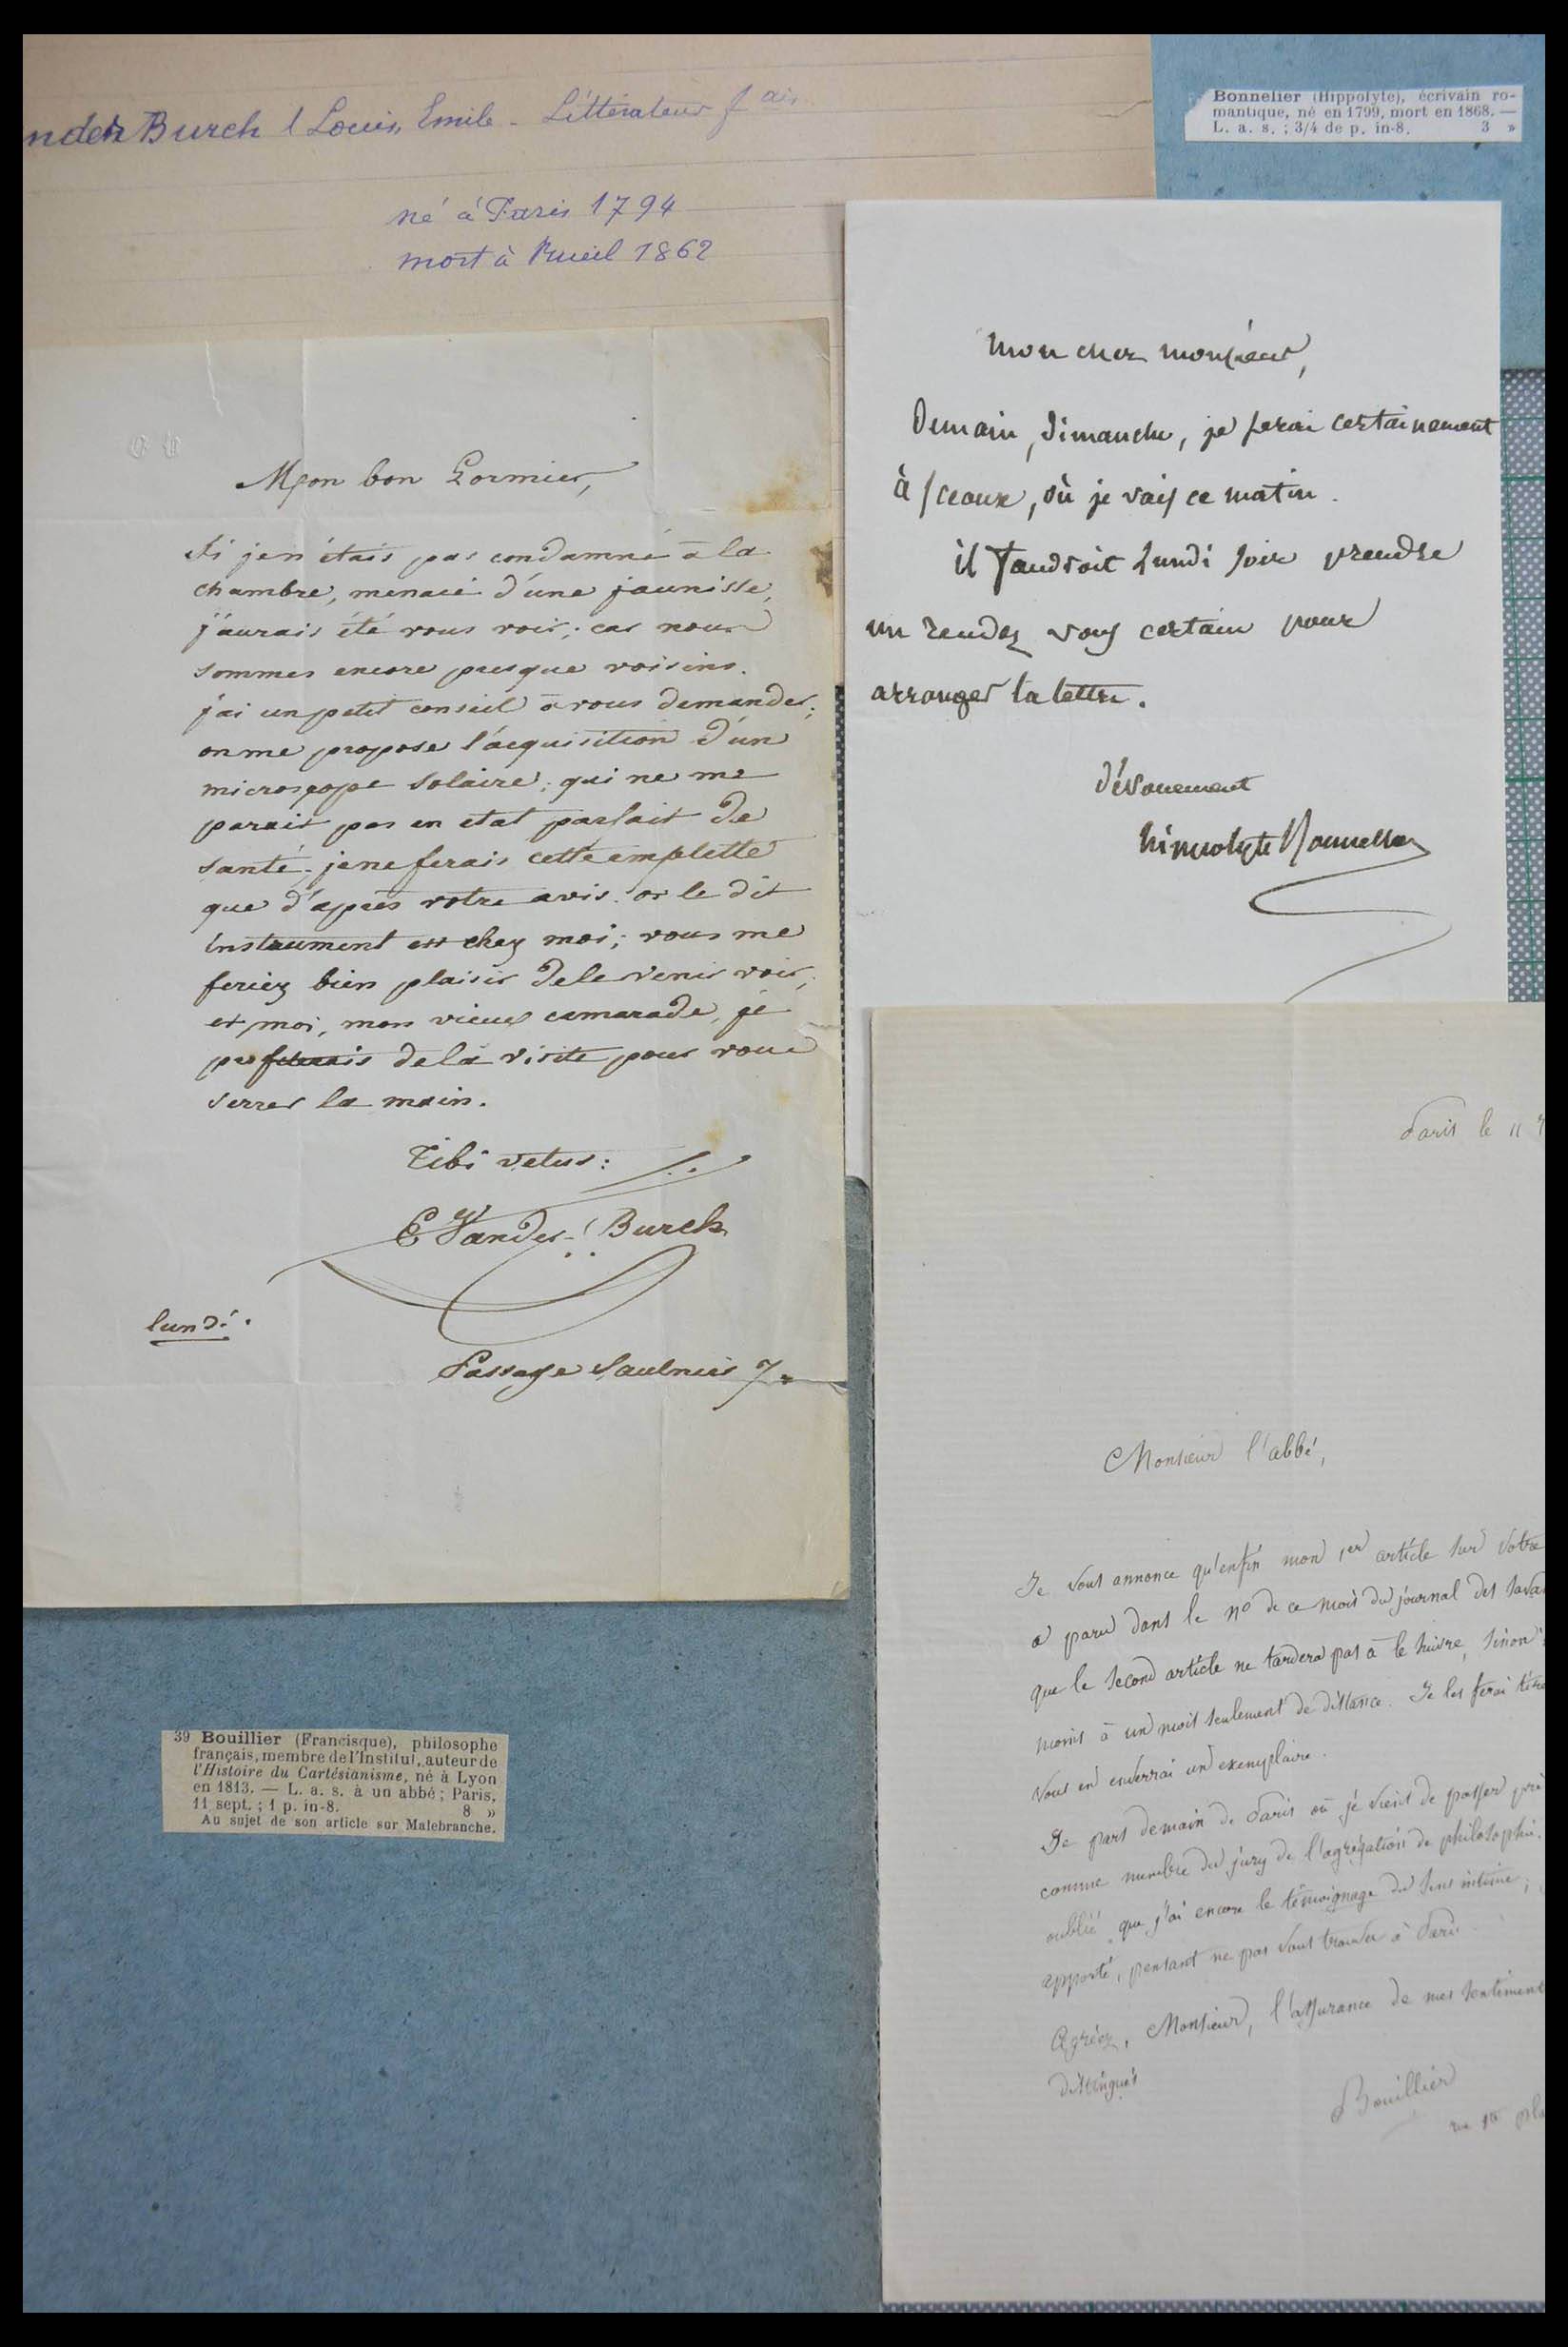 nder Burch (Louis, Emile - Littérateur fais
né à Paris 1794
mort à Rueil 1862
Mon bon Lormier,
si je n'étais pas condamné à la
chambre, menacé d'une jaunisse,
j'aurais été vous voir; car nous
sommes encore presque voisins.
j'ai un petit conseil à vous demander;
on me propose l'acquisition d'un
microscope solaire; qui ne me
parait pas en etat parfait de
santé; je ne ferais cette emplette
que d'après votre avis. or le dit
instrument est chez moi; vous me
feriez bien plaisir de le venir voir;
et moi, mon vieux camarade, je
profiterais de la visite pour vous
serrer la main.
Tibi vetus:
E Vander-Burch
lundi.
Passage Saulnier 7.
Bonnelier (Hippolyte), écrivain ro-
mantique, né en 1799, mort en 1868. —
L. a. s. ; 3/4 de p. in-8. 3 »
Mon cher monsieur,
Demain, dimanche, je serai certainement
à Sceaux, où je vais ce matin.
il faudroit Lundi soir prendre
un rendez vous certain pour
arranger la lettre.
dévouement
hippolyte Bonnelier
Paris le 11
Monsieur l'abbé,
Je vous annonce qu'enfin mon 1er article sur votre
a paru dans le no de ce mois du journal des sava
que le second article ne tardera pas à le suivre, sinon
moins à un mois seulement de distance. Je les ferai tire
vous en enverrai un exemplaire.
Je pars demain de Paris où je viens de passer près
comme membre du jury de l'agrégation de philosophie.
oublié que j'ai encore le témoignage du sens intime;
apporté, pensant ne pas vous trouver à Paris
Agréez, Monsieur, l'assurance de mes sentiment
distingués
Bouillier
39 Bouillier (Francisque), philosophe
français, membre de l'Institut, auteur de
l'Histoire du Cartésianisme, né à Lyon
en 1813. — L. a. s. à un abbé; Paris,
11 sept. ; 1 p. in-8. 8 »
Au sujet de son article sur Malebranche.